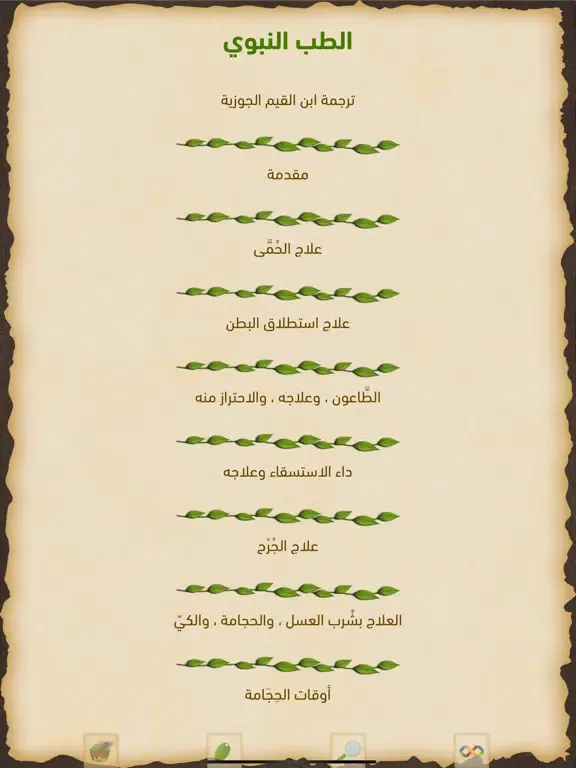 الطب النبوي
ترجمة ابن القيم الجوزية
مقدمة
علاج الحُمَّى
علاج استطلاق البطن
الطَّاعون ، وعلاجه ، والاحتراز منه
داء الاستسقاء وعلاجه
علاج الجُرْح
العلاج بشُرب العسل ، والحجامة ، والكيّ
أوقات الحِجَامة